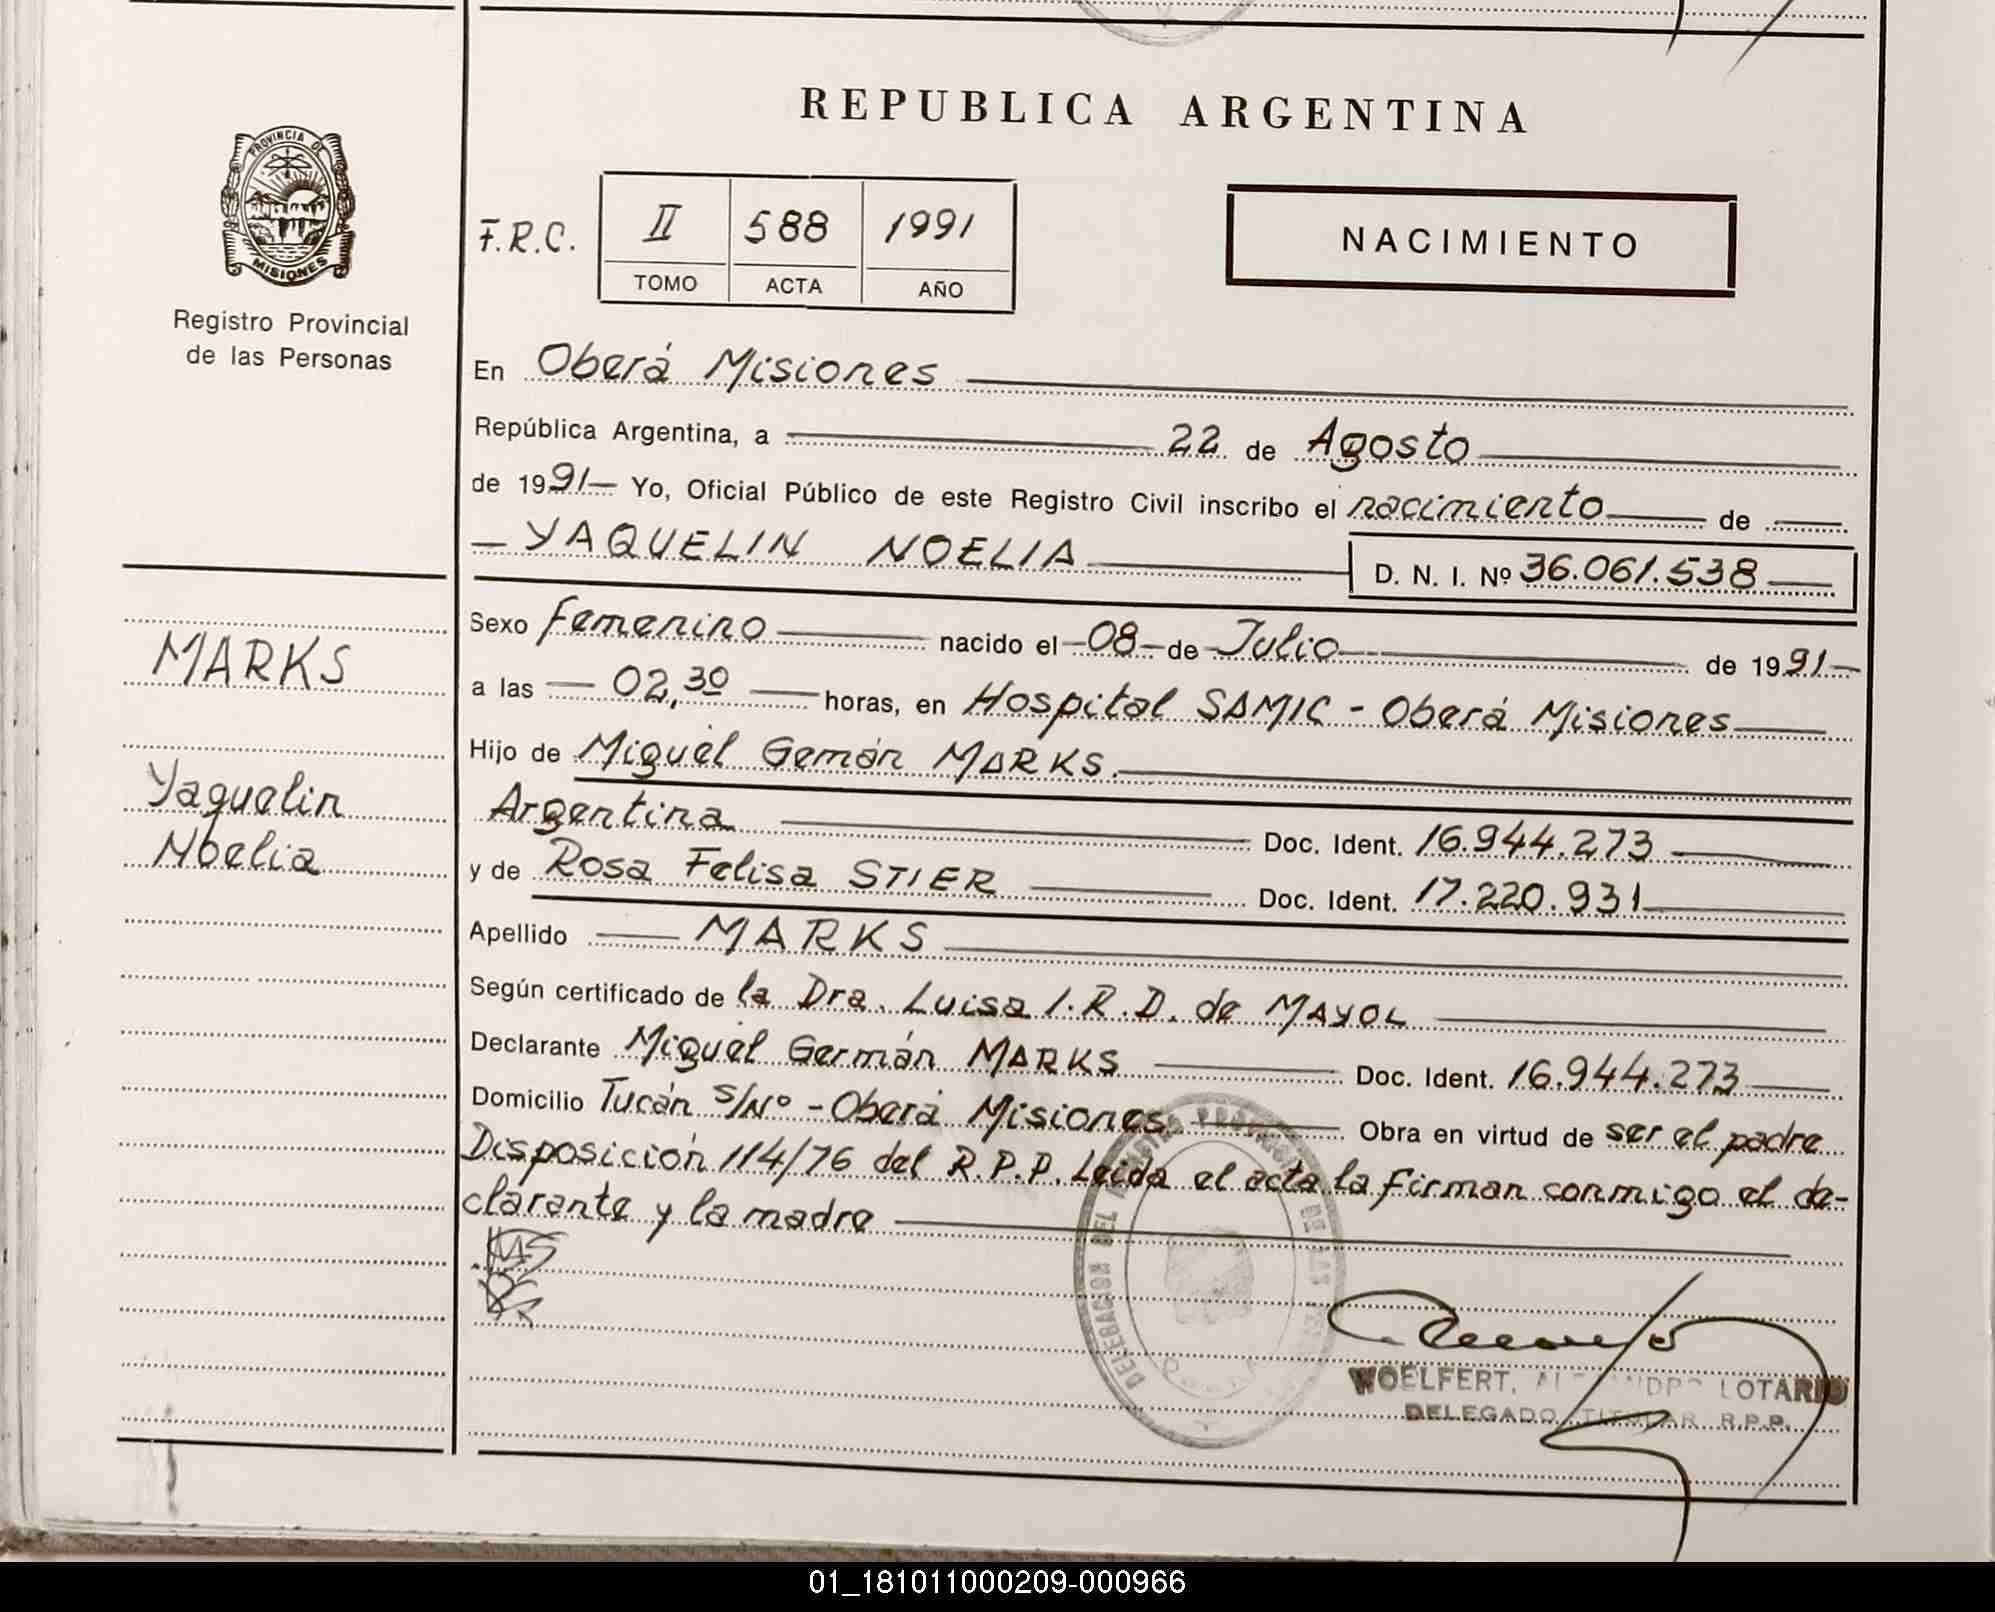 REPUBLICA ARGENTINA
PROVINCIA DE
MISIONES
Registro Provincial
de las Personas
F.R.C.
II 588 1991
TOMO ACTA AÑO
NACIMIENTO
En Oberá Misiones
República Argentina, a 22 de Agosto
de 1991 Yo, Oficial Público de este Registro Civil inscribo el nacimiento de
YAQUELIN NOELIA
D. N. I. Nº 36.061.538
MARKS
Yaquelin
Noelia
Sexo femenino nacido el 08 de Julio de 1991
a las 02,30 horas, en Hospital SAMIC - Oberá Misiones
Hijo de Miguel Gemán MARKS.
Argentina Doc. Ident. 16.944.273
y de Rosa Felisa STIER Doc. Ident. 17.220.931
Apellido MARKS
Según certificado de la Dra. Luisa I.R.D. de MAYOL
Declarante Miguel Germán MARKS Doc. Ident. 16.944.273
Domicilio Tucán S/Nº - Oberá Misiones Obra en virtud de ser el padre
Disposición 114/76 del R.P.P. Leida el acta la firman conmigo el de-
clarante y la madre
DELEGACION DEL REGISTRO PROVINCIAL DE LAS
WOELFERT, LOTARIO
DELEGADO TITULAR R.P.P.
01_181011000209-000966